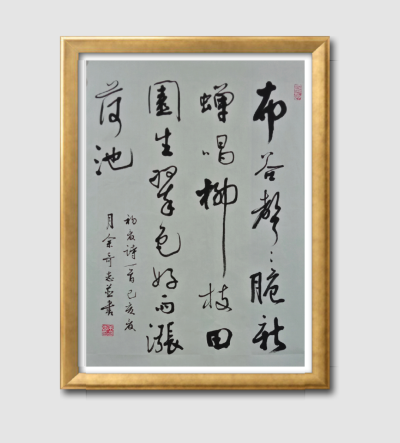 布谷声声脆新
蝉唱柳枝田
园生翠色好雨涨
荷池
初夏诗一首己亥夏
月余奇志益书